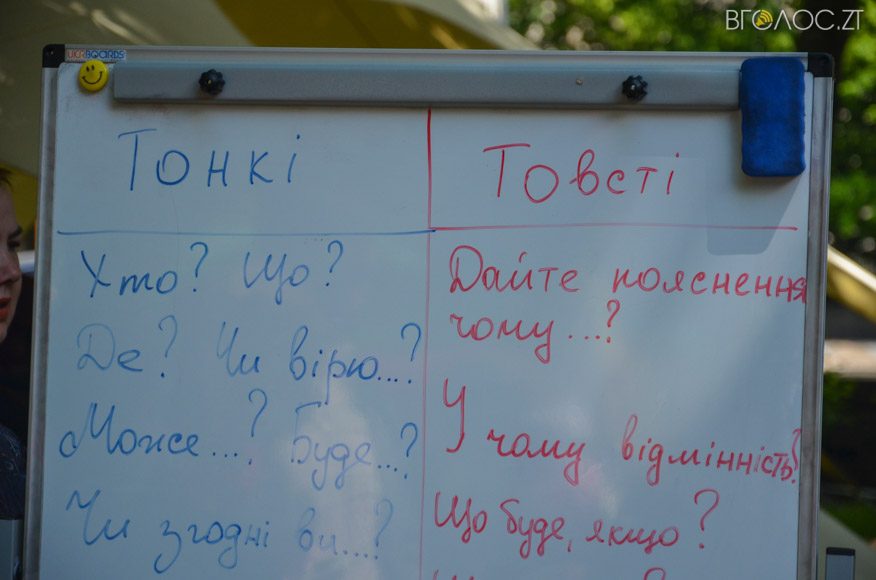 ВГОЛОС.ZT
UKRBOARDS
Тонкі
Хто? Що?
Де? Чи вірю...?
Може...? Буде...?
Чи згодні ви...?
Товсті
Дайте пояснення
чому...?
У чому відмінність?
Що буде, якщо?